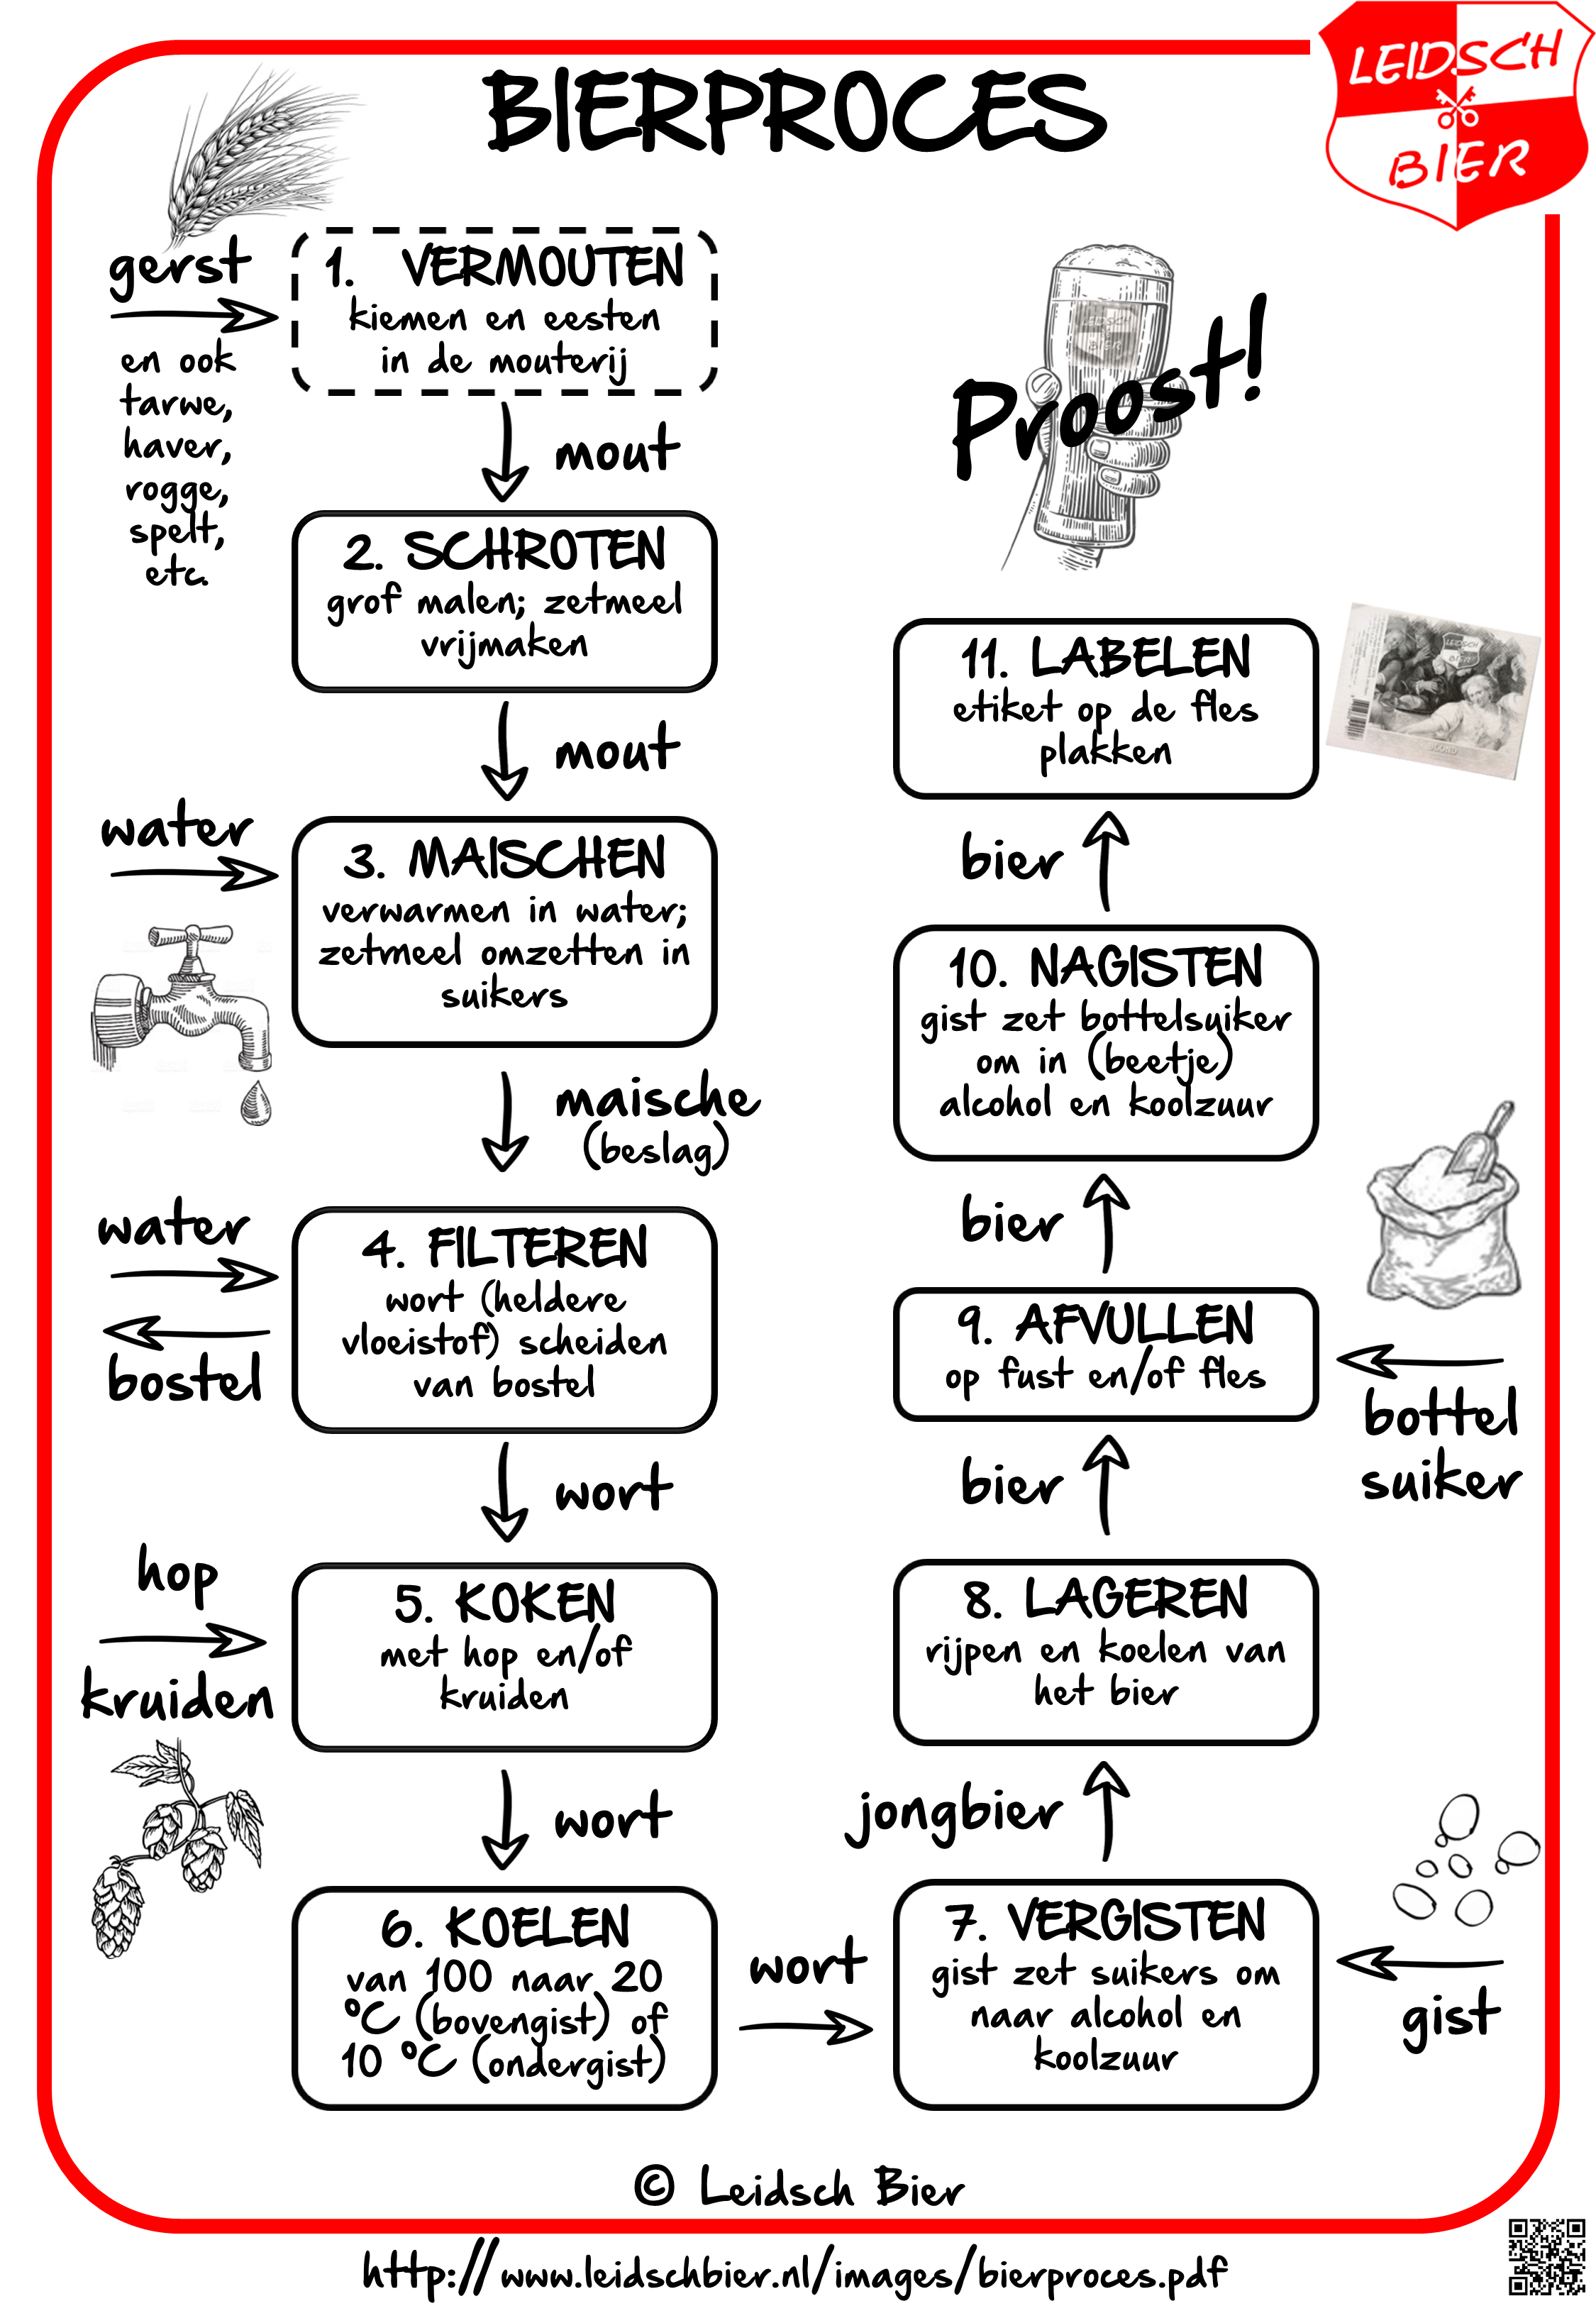 BIERPROCES
LEIDSCH
BIER
gerst
en ook
tarwe,
haver,
rogge,
spelt,
etc.
1. VERMOUTEN
kiemen en eesten
in de mouterij
mout
2. SCHROTEN
grof malen; zetmeel
vrijmaken
mout
water
3. MAISCHEN
verwarmen in water;
zetmeel omzetten in
suikers
maische
(beslag)
water
bostel
4. FILTEREN
wort (heldere
vloeistof) scheiden
van bostel
wort
hop
kruiden
5. KOKEN
met hop en/of
kruiden
wort
6. KOELEN
van 100 naar 20
°C (bovengist) of
10 °C (ondergist)
wort
7. VERGISTEN
gist zet suikers om
naar alcohol en
koolzuur
gist
jongbier
8. LAGEREN
rijpen en koelen van
het bier
bier
9. AFVULLEN
op fust en/of fles
bottel
suiker
bier
10. NAGISTEN
gist zet bottelsuiker
om in (beetje)
alcohol en koolzuur
bier
11. LABELEN
etiket op de fles
plakken
LEIDSCH
BIER
BLOND
LEIDSCH
BIER
Proost!
© Leidsch Bier
http://www.leidschbier.nl/images/bierproces.pdf